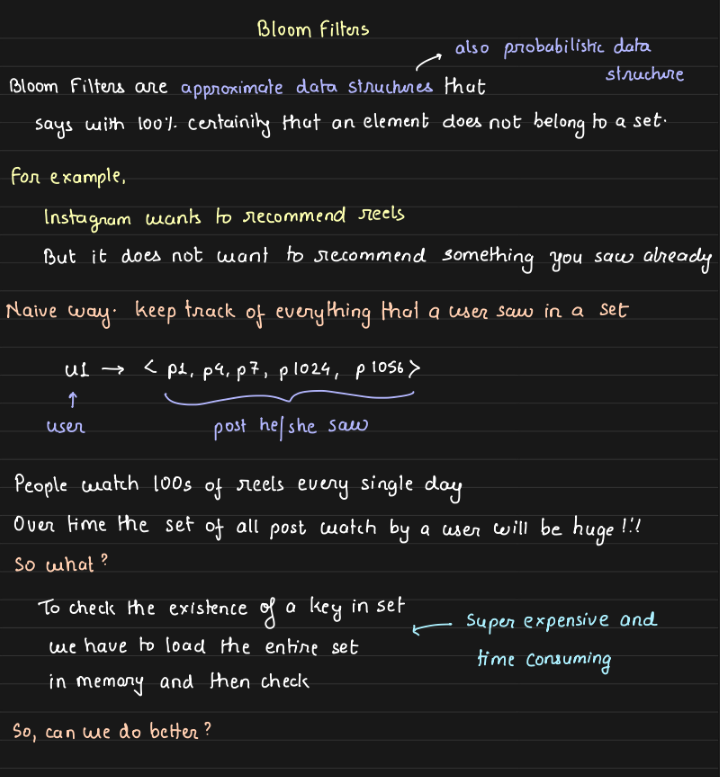 Bloom Filters
also probabilistic data
structure
Bloom Filters are approximate data structures that
says with 100% certainity that an element does not belong to a set.
For example,
Instagram wants to recommend reels
But it does not want to recommend something you saw already
Naive way. keep track of everything that a user saw in a set
u1 → < p1, p4, p7, p1024, p1056>
user
post he/she saw
People watch 100s of reels every single day
Over time the set of all post watch by a user will be huge !!!
So what?
To check the existence of a key in set
we have to load the entire set
in memory and then check
Super expensive and
time consuming
So, can we do better?